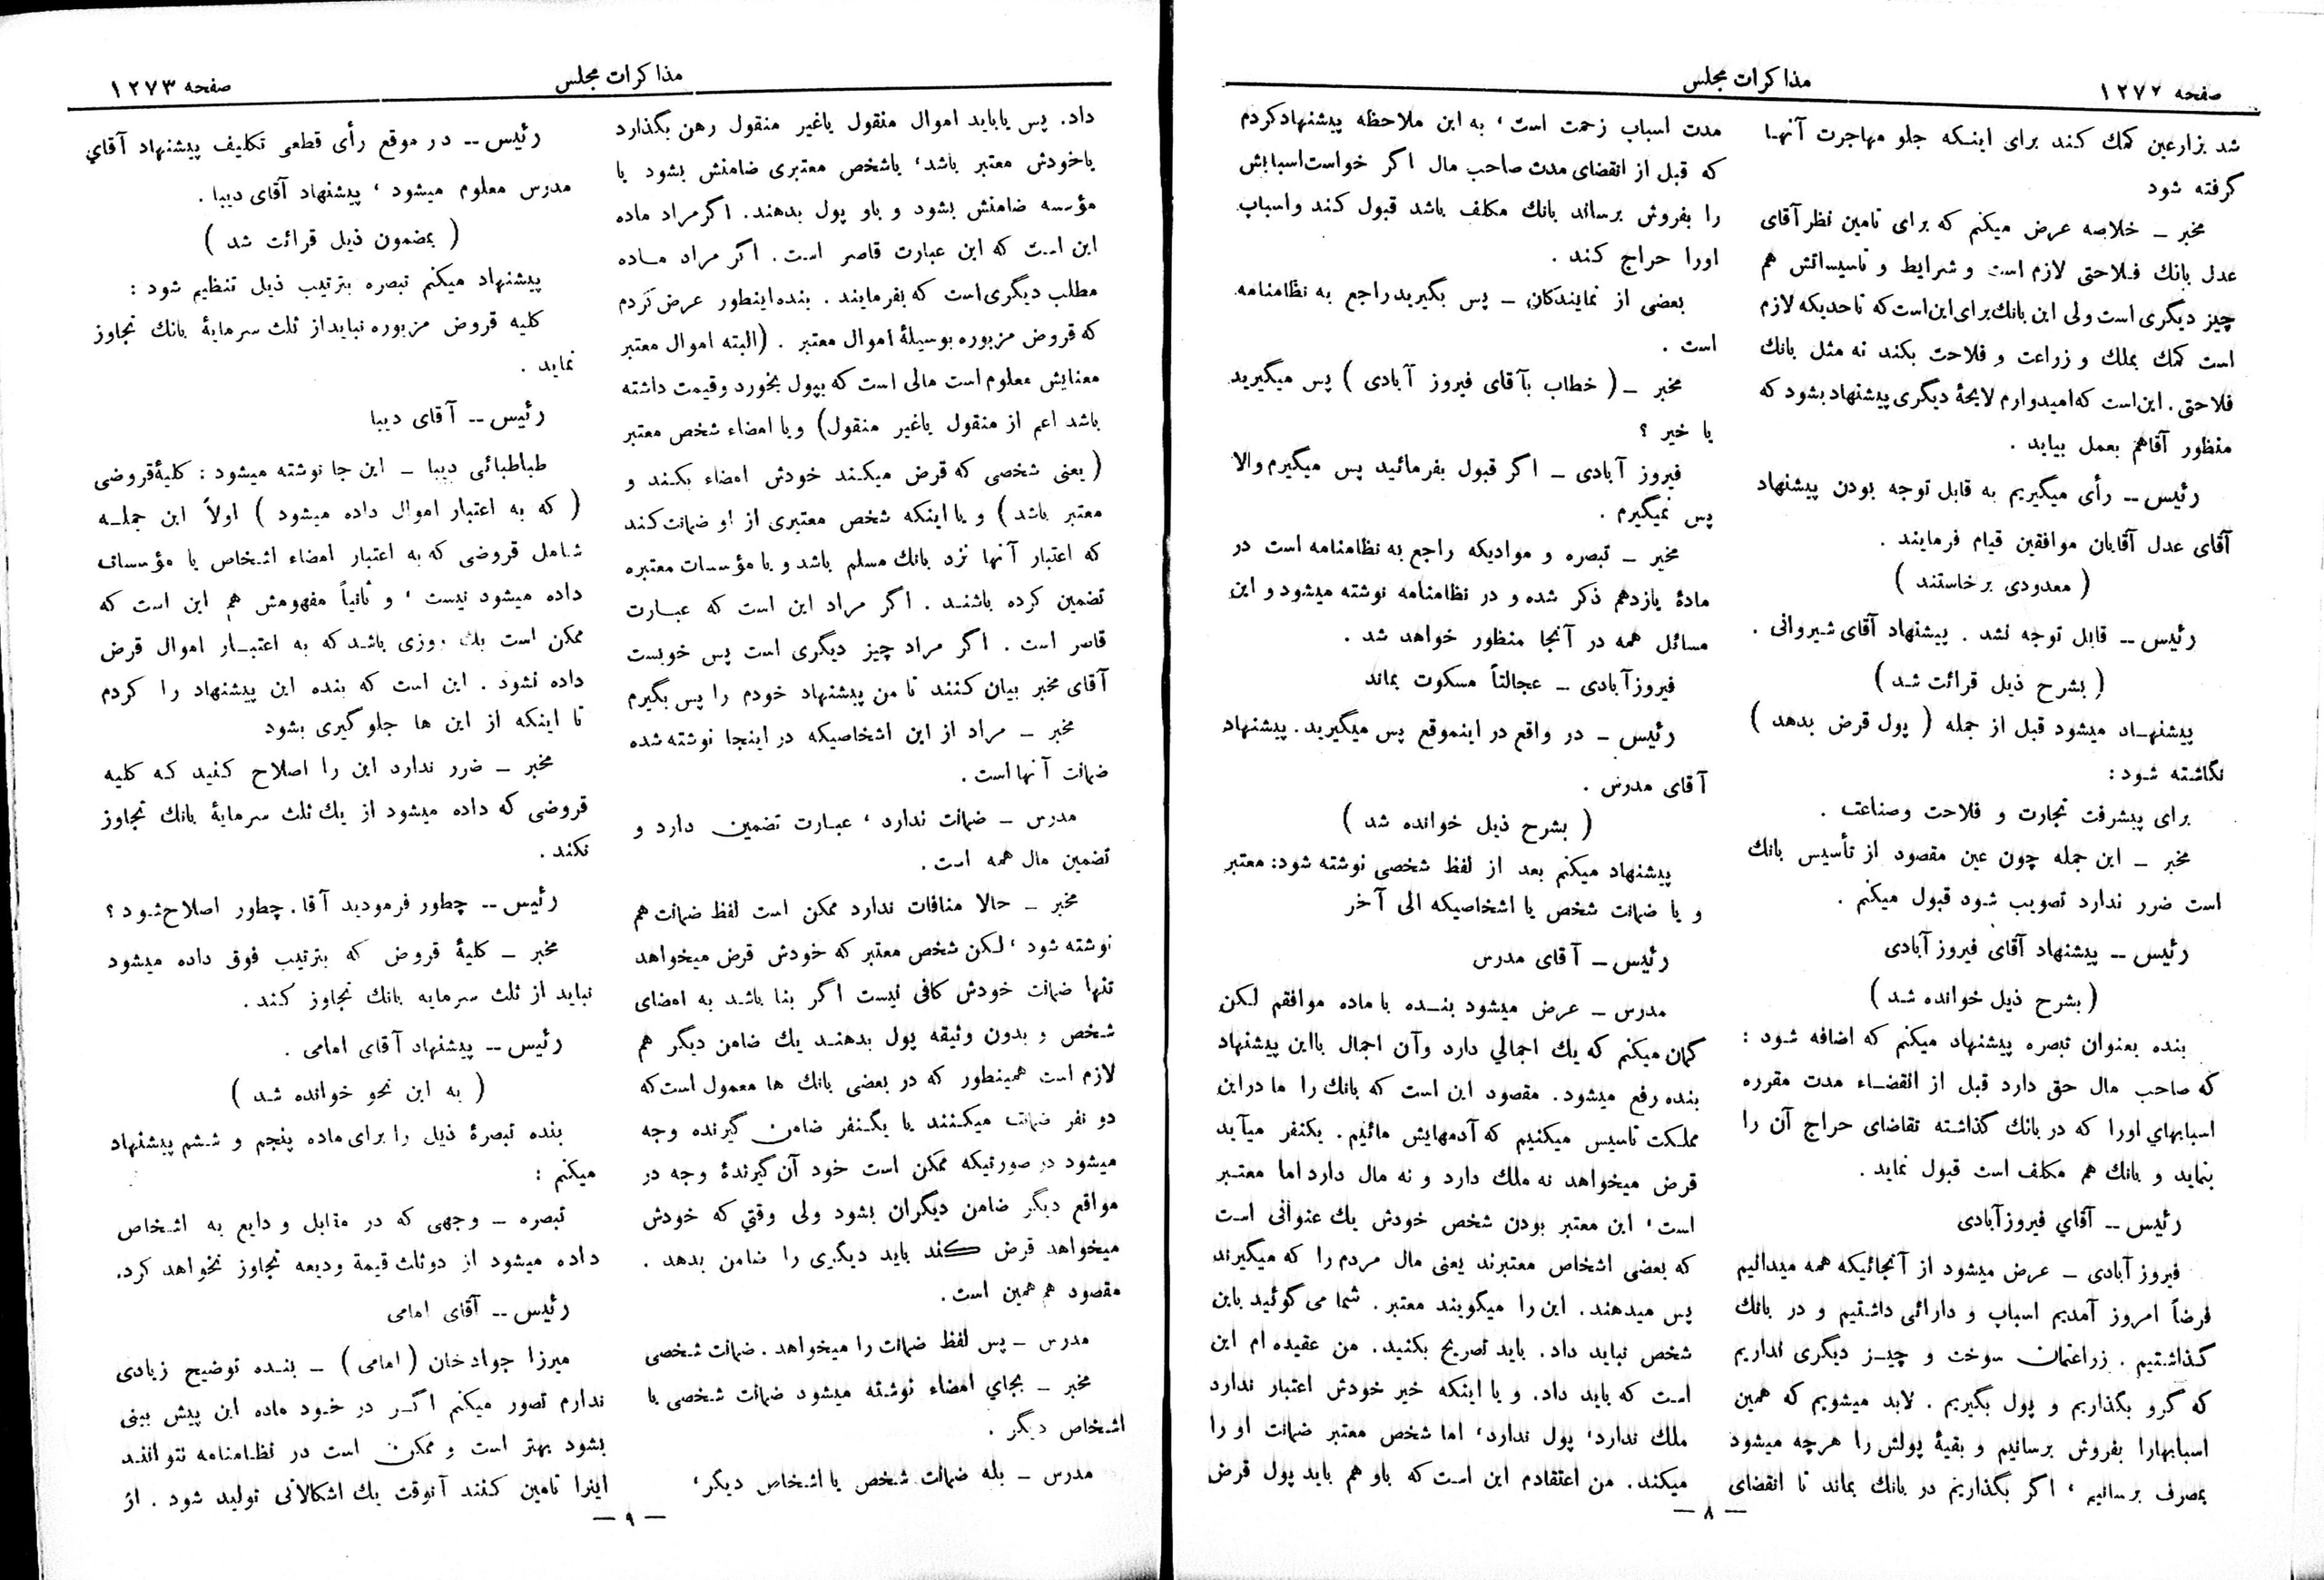 صفحه ۱۲۷۲
مذاکرات مجلس
شد بزارعین کمك کند برای اینکه جلو مهاجرت آنها
گرفته شود
مخبر ـ خلاصه عرض میکنم که برای تامین نظر آقای
عدل بانك فلاحتی لازم است و شرایط و تاسیساتش هم
چیز دیگری است ولی این بانك برای این است که تا حدیکه لازم
است کمك بملك و زراعت و فلاحت بکند نه مثل بانك
فلاحتی. این است که امیدوارم لایحهٔ دیگری پیشنهاد بشود که
منظور آقاهم بعمل بیاید .
رئیس ــ رأی میگیریم به قابل توجه بودن پیشنهاد
آقای عدل آقایان موافقین قیام فرمایند .
( معدودی برخاستند )
رئیس ــ قابل توجه نشد . پیشنهاد آقای شیروانی .
( بشرح ذیل قرائت شد )
پیشنهاد میشود قبل از جمله ( پول قرض بدهد )
نگاشته شود:
برای پیشرفت تجارت و فلاحت وصناعت .
مخبر ـ این جمله چون عین مقصود از تأسیس بانك
است ضرر ندارد تصویب شود قبول میکنم .
رئیس ــ پیشنهاد آقای فیروز آبادی
( بشرح ذیل خوانده شد )
بنده بعنوان تبصره پیشنهاد میکنم که اضافه شود :
که صاحب مال حق دارد قبل از انقضاء مدت مقرره
اسبابهاي اورا که در بانك گذاشته تقاضای حراج آن را
بنماید و بانك هم مکلف است قبول نماید .
رئیس ــ آقاي فیروزآبادی
فیروز آبادی ـ عرض میشود از آنجائیکه همه میدانیم
فرضاً امروز آمدیم اسباب و دارائی داشتیم و در بانك
گذاشتیم . زراعتمان سوخت و چیز دیگری نداریم
که گرو بگذاریم و پول بگیریم . لابد میشویم که همین
اسبابهارا بفروش برسانیم و بقیهٔ پولش را هرچه میشود
بمصرف برسانیم ، اگر بگذاریم در بانك بماند تا انقضای
مدت اسباب زحمت است ، به این ملاحظه پیشنهادکردم
که قبل از انقضای مدت صاحب مال اگر خواست اسبابش
را بفروش برساند بانك مکلف باشد قبول کند و اسباب
اورا حراج کند .
بعضی از نمایندکان ـ پس بگیرید راجع به نظامنامه
است .
مخبر ـ ( خطاب بآقای فیروز آبادی ) پس میگیرید
یا خیر ؟
فیروز آبادی ـ اگر قبول بفرمائید پس میگیرم والا
پس نمیگیرم .
مخبر ـ تبصره و موادیکه راجع به نظامنامه است در
مادهٔ یازدهم ذکر شده و در نظامنامه نوشته میشود و این
مسائل همه در آنجا منظور خواهد شد .
فیروزآبادی ـ عجالتاً مسکوت بماند
رئیس ـ در واقع در اینموقع پس میگیرید. پیشنهاد
آقای مدرس .
( بشرح ذیل خوانده شد )
پیشنهاد میکنم بعد از لفظ شخصی نوشته شود: معتبر
و یا ضمانت شخص یا اشخاصیکه الی آخر
رئیس ـ آقای مدرس
مدرس ـ عرض میشود بنده با ماده موافقم لکن
گمان میکنم که یك اجمالي دارد وآن اجمال بااین پیشنهاد
بنده رفع میشود. مقصود این است که بانك را ما دراین
مملکت تاسیس میکنیم که آدمهایش مائیم. یکنفر میآید
قرض میخواهد نه ملك دارد و نه مال دارد اما معتبر
است، این معتبر بودن شخص خودش یك عنوانی است
که بعضی اشخاص معتبرند یعنی مال مردم را که میگیرند
پس میدهند. این را میگویند معتبر. شما می گوئید باین
شخص نباید داد. باید تصریح بکنید. من عقیده ام این
است که باید داد. و یا اینکه خیر خودش اعتبار ندارد
ملك ندارد، پول ندارد، اما شخص معتبر ضمانت او را
میکند. من اعتقادم این است که باو هم باید پول قرض
ـ ۸ ـ
مذاکرات مجلس
صفحه ۱۲۷۳
داد. پس یاباید اموال منقول یاغیر منقول رهن بگذارد
یاخودش معتبر باشد، یاشخص معتبری ضامنش بشود یا
مؤسسه ضامنش بشود و باو پول بدهند. اگرمراد ماده
این است که این عبارت قاصر است. اگر مراد ماده
مطلب دیگری است که بفرمایند . بنده اینطور عرض کردم
که قروض مزبوره بوسیلهٔ اموال معتبر . (البته اموال معتبر
معنایش معلوم است مالی است که بپول بخورد وقیمت داشته
باشد اعم از منقول یاغیر منقول) ویا امضاء شخص معتبر
( یعنی شخصی که قرض میکند خودش امضاء بکند و
معتبر باشد ) و یا اینکه شخص معتبری از او ضمانت کند
که اعتبار آنها نزد بانك مسلم باشد و یا مؤسسات معتبره
تضمین کرده باشند . اگر مراد این است که عبارت
قاصر است . اگر مراد چیز دیگری است پس خوبست
آقای مخبر بیان کنند تا من پیشنهاد خودم را پس بگیرم
مخبر ـ مراد از این اشخاصیکه در اینجا نوشته شده
ضمانت آنها است.
مدرس ـ ضمانت ندارد ، عبارت تضمین دارد و
تضمین مال همه است.
مخبر ـ حالا منافات ندارد ممکن است لفظ ضمانت هم
نوشته شود ، لکن شخص معتبر که خودش قرض میخواهد
تنها ضمانت خودش کافی نیست اگر بنا باشد به امضای
شخص و بدون وثیقه پول بدهند یك ضامن دیگر هم
لازم است همینطور که در بعضی بانك ها معمول است که
دو نفر ضمانت میکنند یا یکنفر ضامن گیرنده وجه
میشود در صورتیکه ممکن است خود آن گیرندهٔ وجه در
مواقع دیگر ضامن دیگران بشود ولی وقتي که خودش
میخواهد قرض کند باید دیگری را ضامن بدهد .
مقصود هم همین است.
مدرس ـ پس لفظ ضمانت را میخواهد. ضمانت شخصی
مخبر ـ بجاي امضاء نوشته میشود ضمانت شخصی یا
اشخاص دیگر .
مدرس ـ بله ضمانت شخص یا اشخاص دیگر،
رئیس ــ در موقع رأی قطعی تکلیف پیشنهاد آقاي
مدرس معلوم میشود ، پیشنهاد آقای دیبا .
( بمضمون ذیل قرائت شد )
پیشنهاد میکنم تبصره بترتیب ذیل تنظیم شود :
کلیه قروض مزبوره نباید از ثلث سرمایهٔ بانك تجاوز
نماید .
رئیس ــ آقای دیبا
طباطبائی دیبا ـ این جا نوشته میشود : کلیهٔ قروضی
( که به اعتبار اموال داده میشود ) اولاً این جمله
شامل قروضی که به اعتبار امضاء اشخاص یا مؤسسات
داده میشود نیست ، و ثانیاً مفهومش هم این است که
ممکن است یك روزی باشد که به اعتبار اموال قرض
داده نشود . این است که بنده این پیشنهاد را کردم
تا اینکه از این ها جلوگیری بشود
مخبر ـ ضرر ندارد این را اصلاح کنید که کلیه
قروضی که داده میشود از یك ثلث سرمایهٔ بانك تجاوز
نکند .
رئیس ــ چطور فرمودید آقا. چطور اصلاح شود ؟
مخبر ـ کلیهٔ قروض که بترتیب فوق داده میشود
نباید از ثلث سرمایه بانك تجاوز کند .
رئیس ــ پیشنهاد آقای امامی .
( به این نحو خوانده شد )
بنده تبصرهٔ ذیل را برای ماده پنجم و ششم پیشنهاد
میکنم :
تبصره ـ وجهی که در مقابل ودایع به اشخاص
داده میشود از دوثلث قیمة ودیعه تجاوز نخواهد کرد.
رئیس ــ آقای امامی
میرزا جواد خان ( امامی ) ـ بنده توضیح زیادی
ندارم تصور میکنم اگر در خود ماده این پیش بینی
بشود بهتر است و ممکن است در نظامنامه نتوانند
اینرا تامین کنند آنوقت یك اشکالاتی تولید شود . از
ـ ۹ ـ